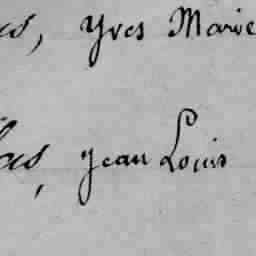 as, Yves Marie
as, Jean Louis